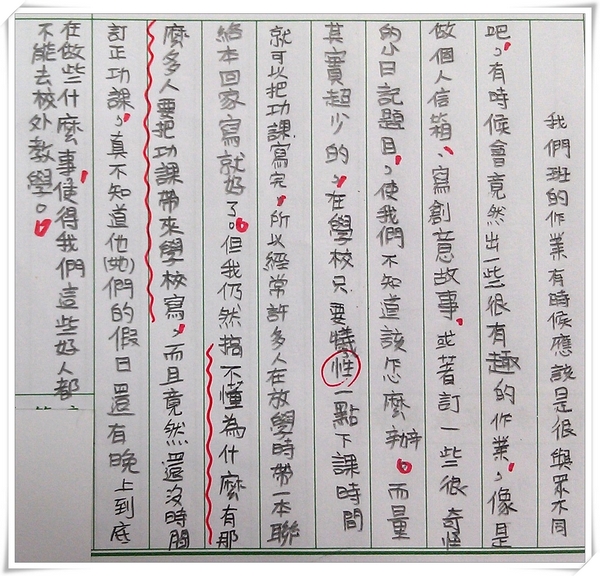 我們班的作業有時候應該是很與眾不同
吧，有時候會竟然出一些很有趣的作業，像是
做個人信箱、寫創意故事，或著訂一些很奇怪
的小日記題目，使我們不知道該怎麼辦。而量
其實超少的，在學校只要犧性一點下課時間
就可以把功課寫完，所以經常許多人在放學時帶一本聯
絡本回家寫就好了。但我仍然搞不懂為什麼有那
麼多人要把功課帶來學校寫，而且竟然還沒時間
訂正功課，真不知道他(她)們的假日還有晚上到底
在做些什麼事，使得我們這些好人都
不能去校外教學。